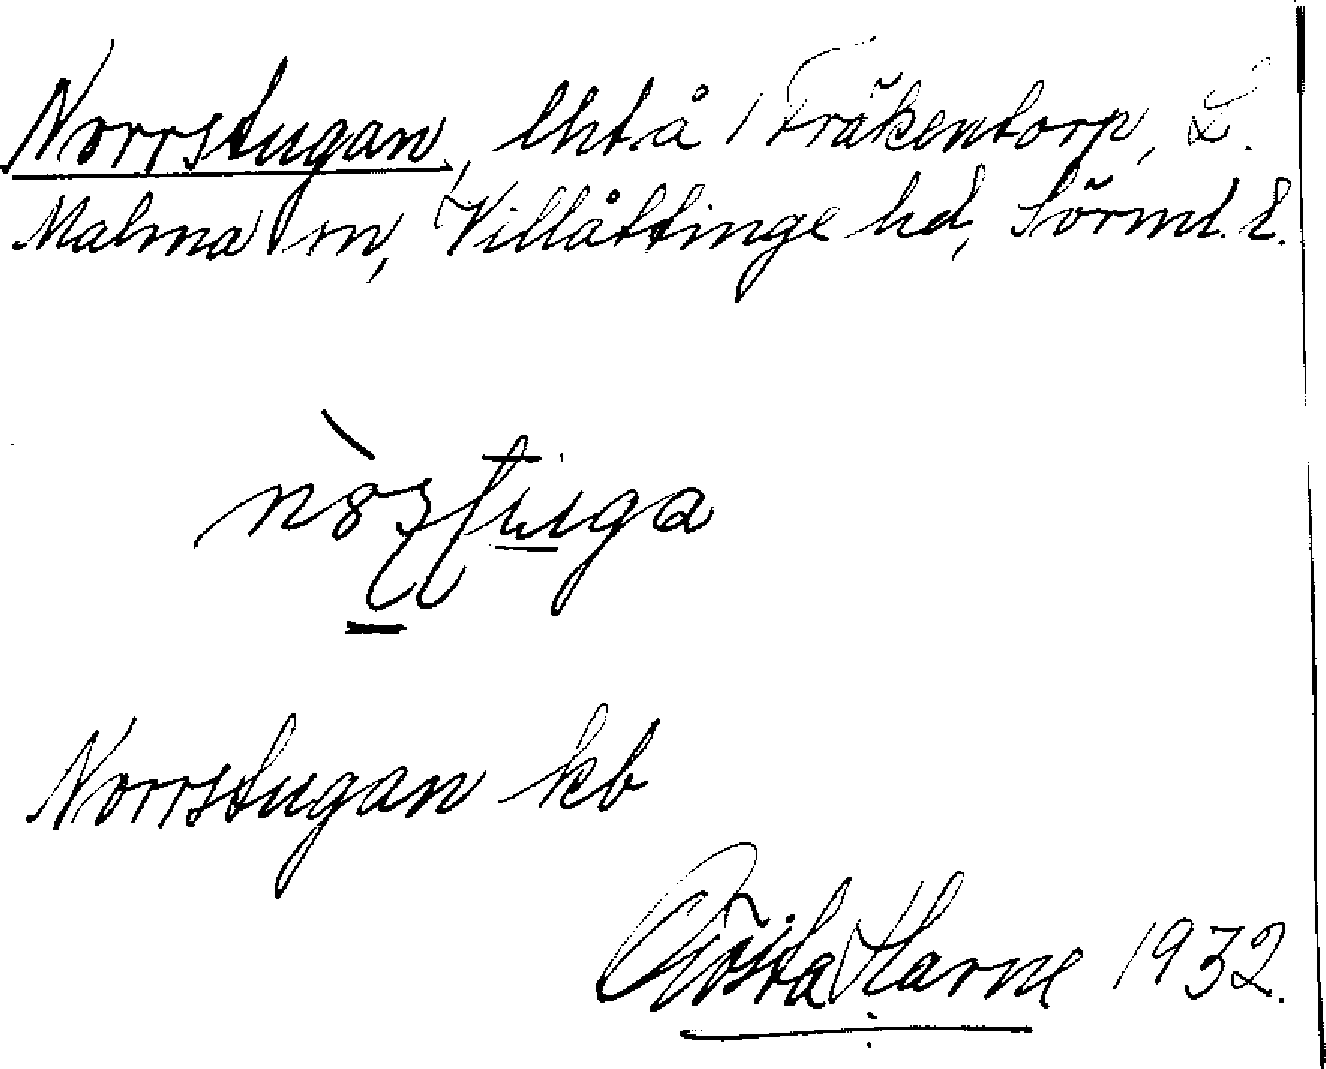 Norrstugan, lht å Fräkentorp, L.
Malma sn, Villåttinge hd, Sörml. l.
Norrstugan kb
Gösta Harne 1932.